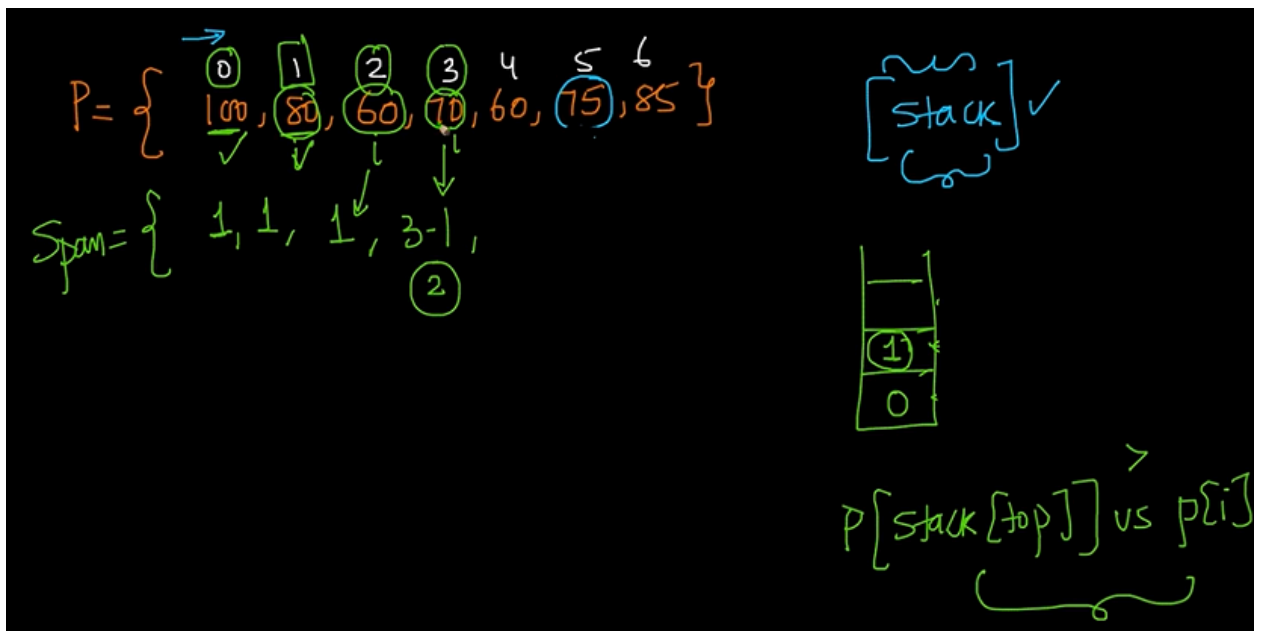 0 1 2 3 4 5 6
P = { 100, 80, 60, 70, 60, 75, 85 }
[stack] ✓
Span = { 1, 1, 1, 3-1,
2
1
0
>
P[stack[top]] vs p[i]